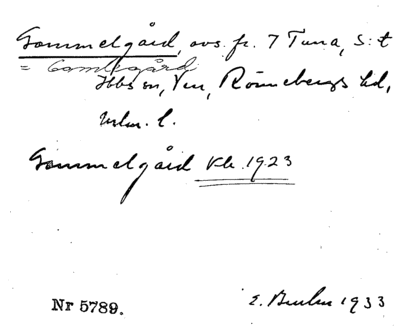 Gammelgård, avs. fr. 7 Tuna, S:t
= Gamlegård
Ibbs sn, Ven, Rönnebergs hd,
Mlm. l.
Gammelgård Kk. 1923
Nr 5789.
1933